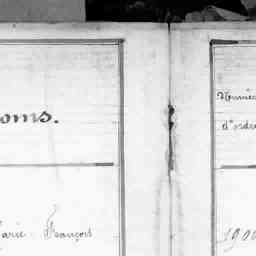 oms.
arie François
Numéro
d'ordre
1900